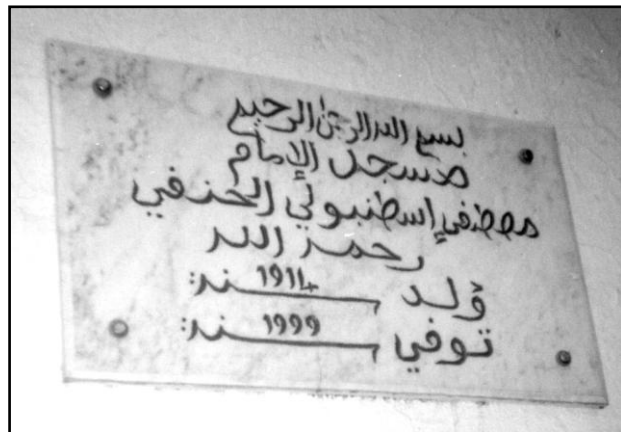 بسم الله الرحمن الرحيم
مسجد الإمام
مصطفى إسطنبولي الحنفي
رحمه الله
وُلد سنة: 1914
توفي سنة: 1999